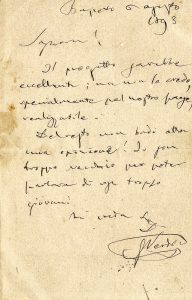 agosto
1893
Signore!
Il progetto sarebbe
eccellente; ma non lo credo,
specialmente pel nostro paese,
realizzabile.
Del resto non badi alla
mia opinione! Io son
troppo vecchio per poter
parlare di cose troppo
giovani
Mi creda
G Verdi